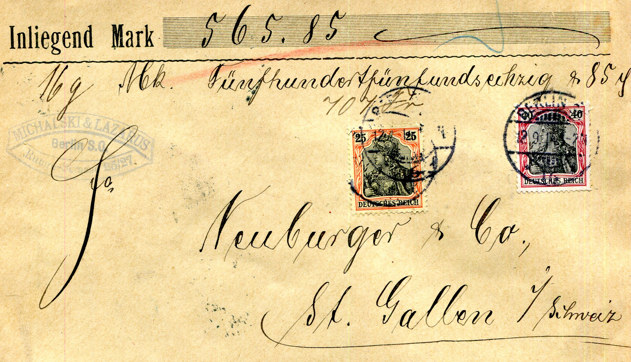 Inliegend Mark 565.85
16g Mk. Fünfhundertfünfundsechzig & 85 ₰
MICHALSKI & LAZARUS
Berlin S.O.
Fa.
BERLIN
25 25
DEUTSCHES REICH
BERLIN
40
DEUTSCHES REICH
Neuburger & Co.,
St. Gallen i/Schweiz